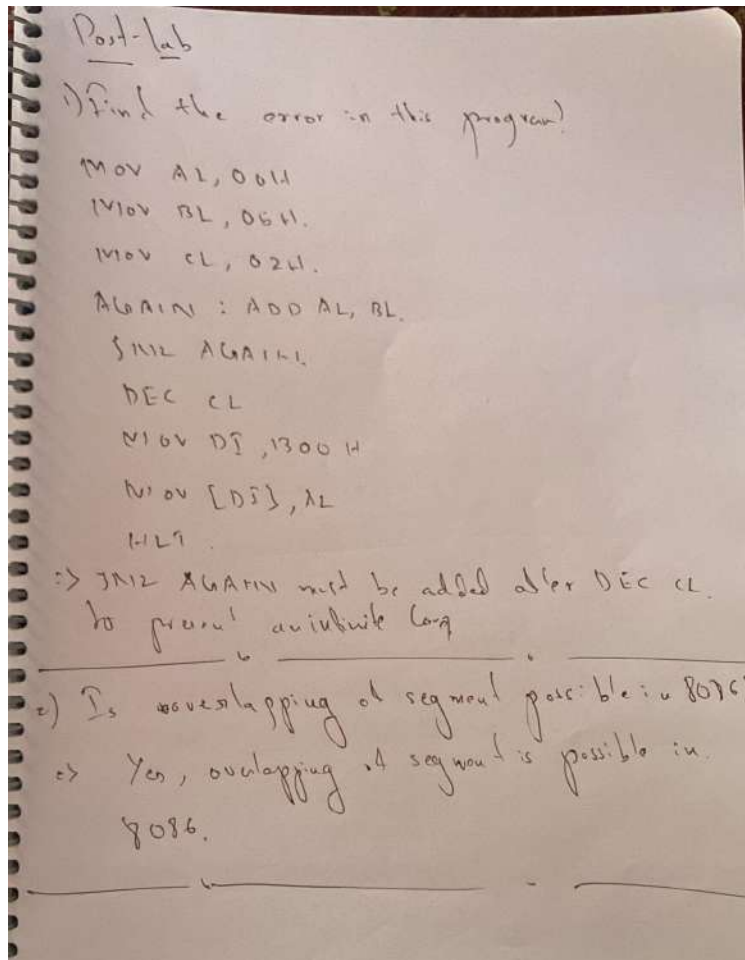 Post-lab
1) Find the error in this program?
MOV AL, 00H
MOV BL, 05H.
MOV CL, 02H.
AGAIN : ADD AL, BL.
JNZ AGAIN.
DEC CL
MOV DI, 1300 H
MOV [DI], AL
HLT.
=> JNZ AGAIN must be added after DEC CL.
to prevent an infinite loop
2) Is overlapping of segment possible in 8086?
=> Yes, overlapping of segment is possible in.
8086.